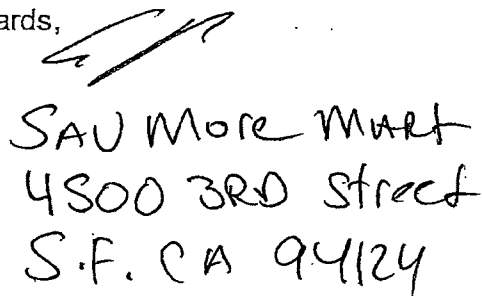 ards,
SAV More MART
4500 3RD Street
S.F. CA 94124